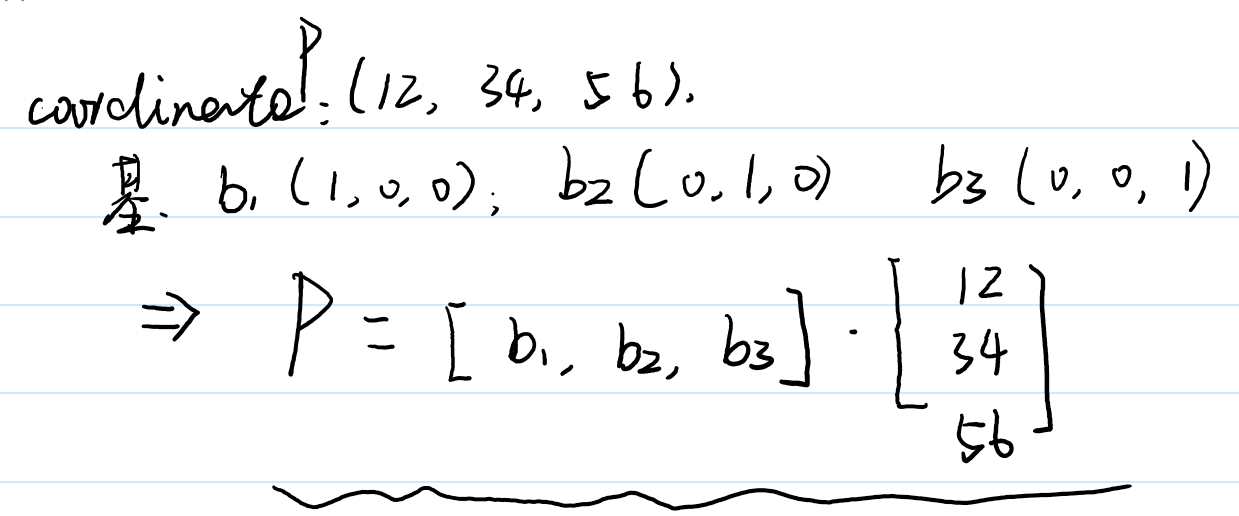 coordinate P: (12, 34, 56).
基. b₁ (1, 0, 0); b2 (0, 1, 0) b3 (0, 0, 1)
⇒ P = [ b₁, b₂, b3 ] · [ 12
34
56 ]